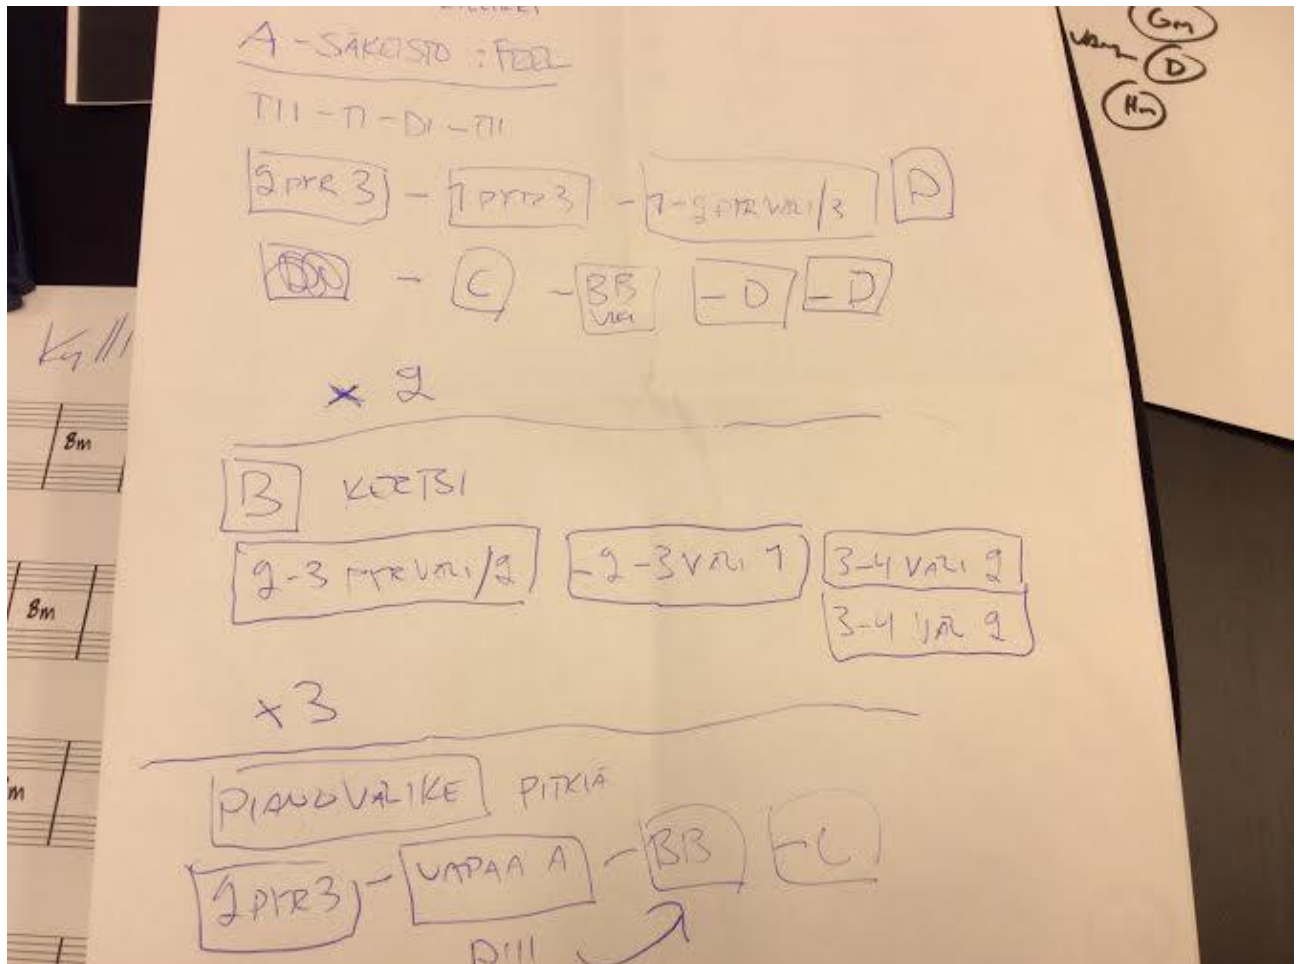 A - SÄKEISTÖ : FEEL
TII - TI - DI - TII
2 PYR 3 - 1 PYR 3 - 1-2 PYR VÄLI/3 D
- C - BB VÄLI - D - D
x 2
B KERTSI
2-3 PYR VÄLI/2 - 2-3 VÄLI 1 3-4 VÄLI 2
3-4 VÄLI 2
x3
PIANOVÄLIKE PITKIÄ
2 PYR 3 - VAPAA A - BB - C
DIII
Gm
D
Hm
Kylli
Bm
Bm
m